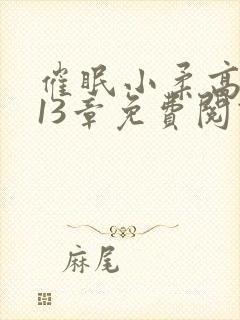 催眠小柔高
13章免費閱
麻尾